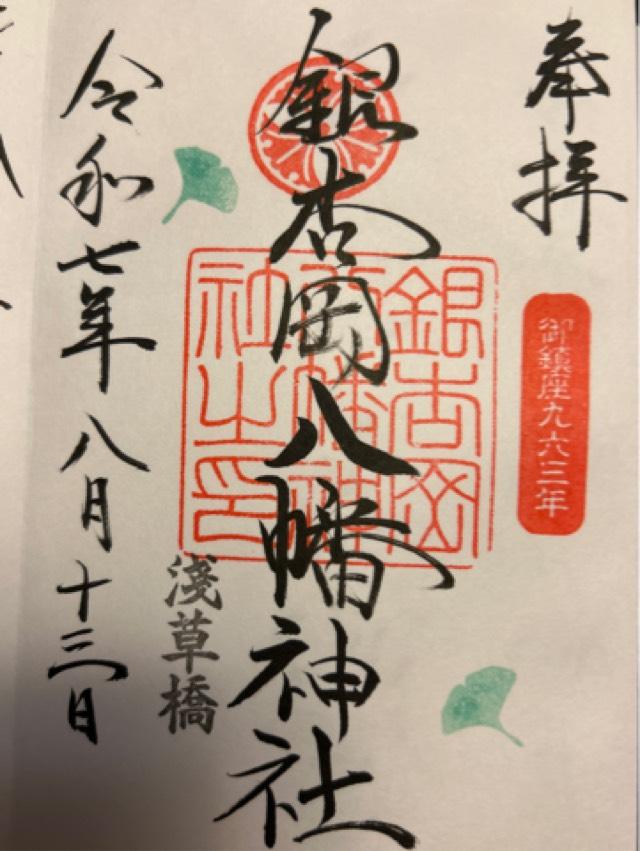 奉拝
御鎮座九六三年
銀杏岡八幡神社
銀杏岡八幡神社之印
浅草橋
令和七年八月十三日